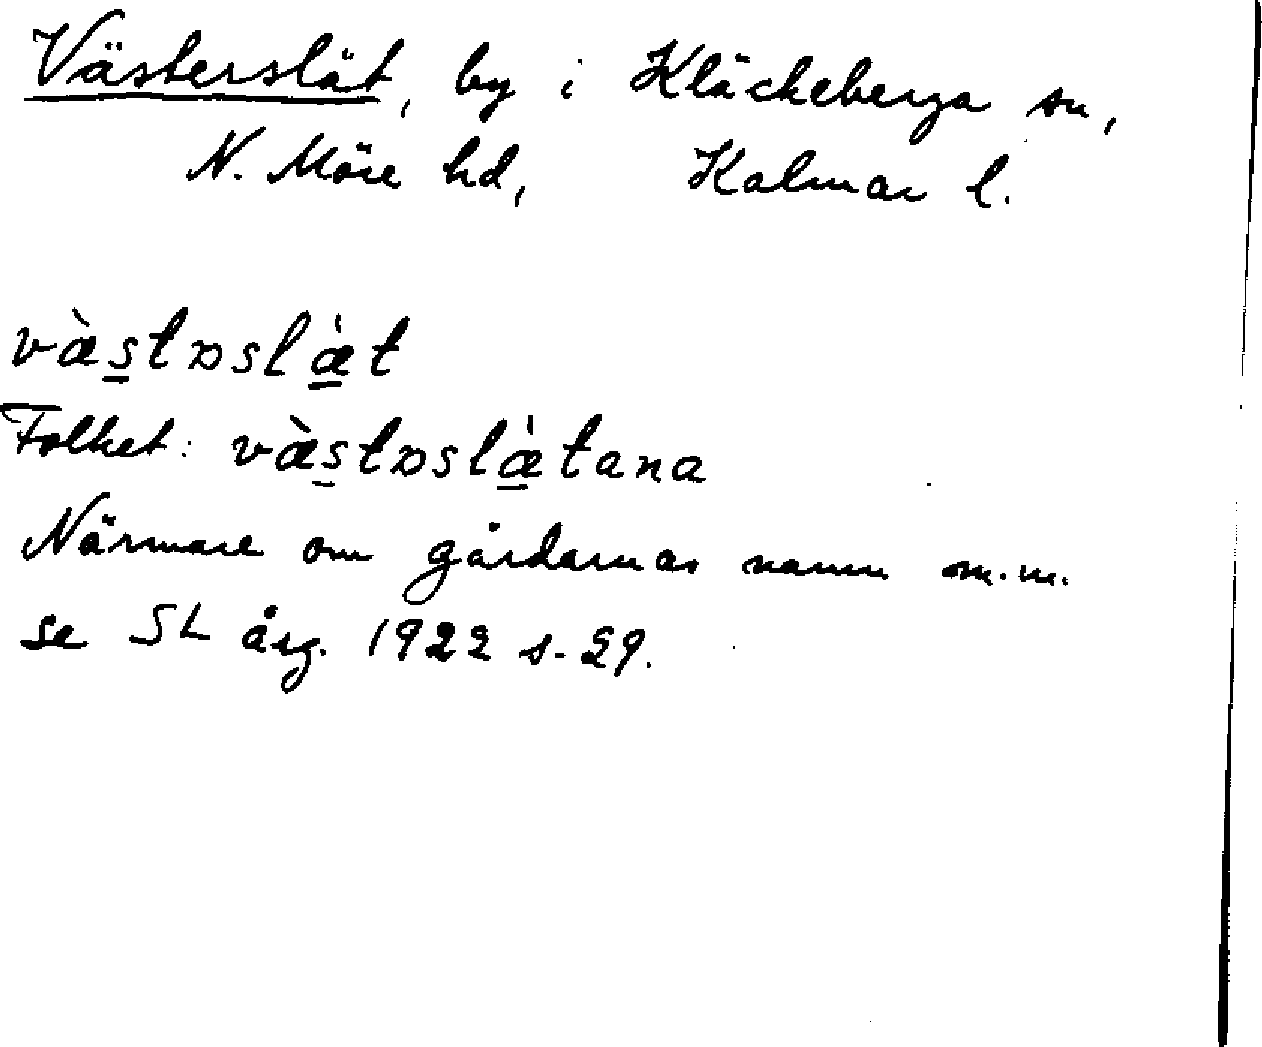 Västerslät, by i Kläckeberga sn,
N. Möre hd, Kalmar l.
væ̀s̲tɒslæ̲̀t
Folket: væ̀s̲tɒslæ̲̀tana
Närmare om gårdarnas namn m.m.
se SL årg. 1922 s. 29.